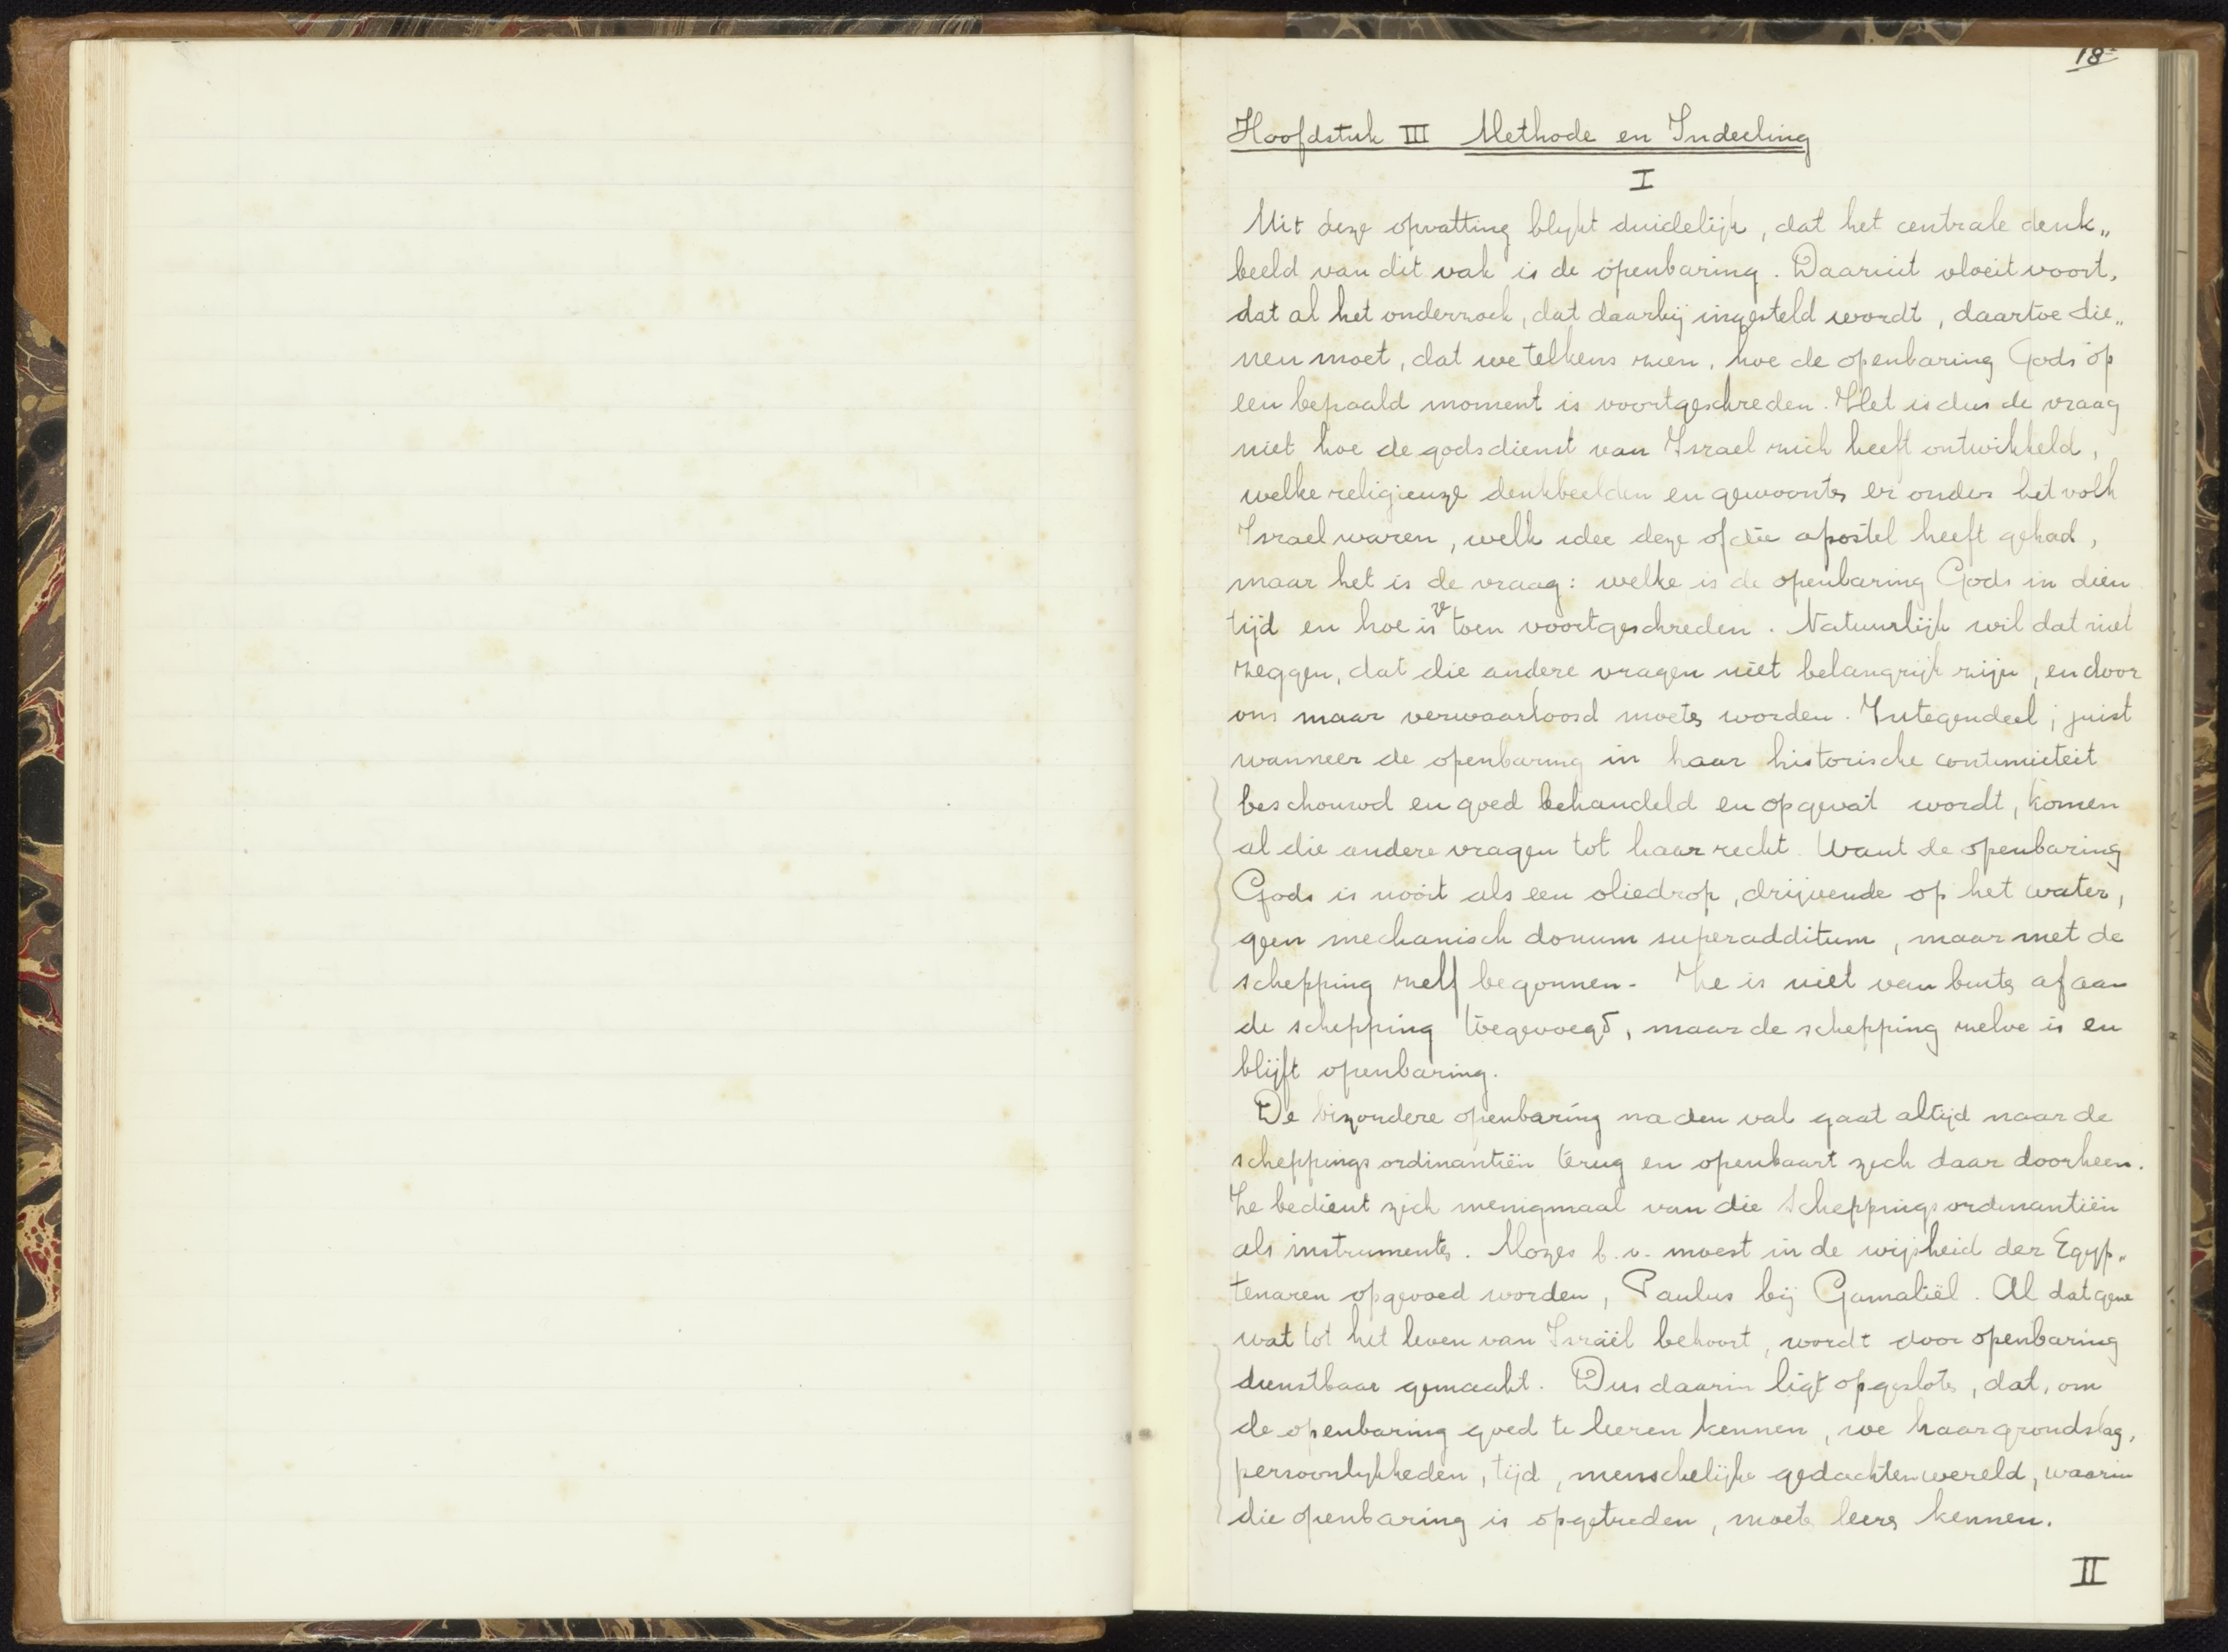 18
Hoofdstuk III Methode en Indeeling
I
Uit deze opvatting blykt duidelijk, dat het centrale denk„
beeld van dit vak is de openbaring. Daaruit vloeit voort,
dat al het onderzoek, dat daarbij ingesteld wordt, daartoe die„
nen moet, dat we telkens zien, hoe de openbaring Gods op
een bepaald moment is voortgeschreden. Het is dus de vraag
niet hoe de godsdienst van Israel zich heeft ontwikkeld,
welke religieuze denkbeelden en gewoonten er onder het volk
Israel waren, welk idee deze of die apostel heeft gehad,
maar het is de vraag: welke is de openbaring Gods in dien
tijd en hoe is ze toen voortgeschreden. Natuurlijk wil dat niet
zeggen, dat die andere vragen niet belangrijk zijn, en door
ons maar verwaarloosd moeten worden. Integendeel; juist
wanneer de openbaring in haar historische continuiteit
beschouwd en goed behandeld en opgevat wordt, komen
al die andere vragen tot haar recht. Want de openbaring
Gods is nooit als een oliedrop, drijvende op het water,
geen mechanisch donum superadditum, maar met de
schepping zelf begonnen. Ze is niet van buiten af aan
de schepping toegevoegd, maar de schepping zelve is en
blijft openbaring.
De bizondere openbaring na den val gaat altijd naar de
scheppingsordinantiën terug en openbaart zich daar doorheen.
Ze bedient zich menigmaal van die scheppingsordinantiën
als instrumenten. Mozes b.v. moest in de wijsheid der Egyp„
tenaren opgevoed worden, Paulus bij Gamaliël. Al datgene
wat tot het leven van Israël behoort, wordt door openbaring
dienstbaar gemaakt. Dus daarin ligt opgesloten, dat, om
de openbaring goed te leeren kennen, we haar grondslag,
persoonlykheden, tijd, menschelijke gedachtenwereld, waarin
die openbaring is opgetreden, moeten leeren kennen.
II